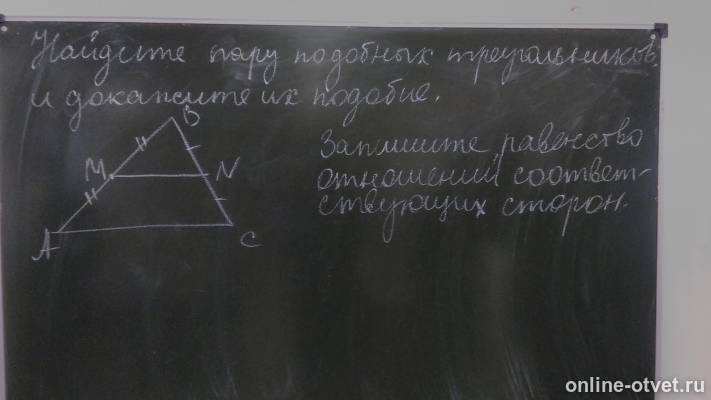 Найдите пару подобных треугольников
и докажите их подобие.
B
Запишите равенство
M
N
отношений соответ-
ствующих сторон.
A
C
online-otvet.ru